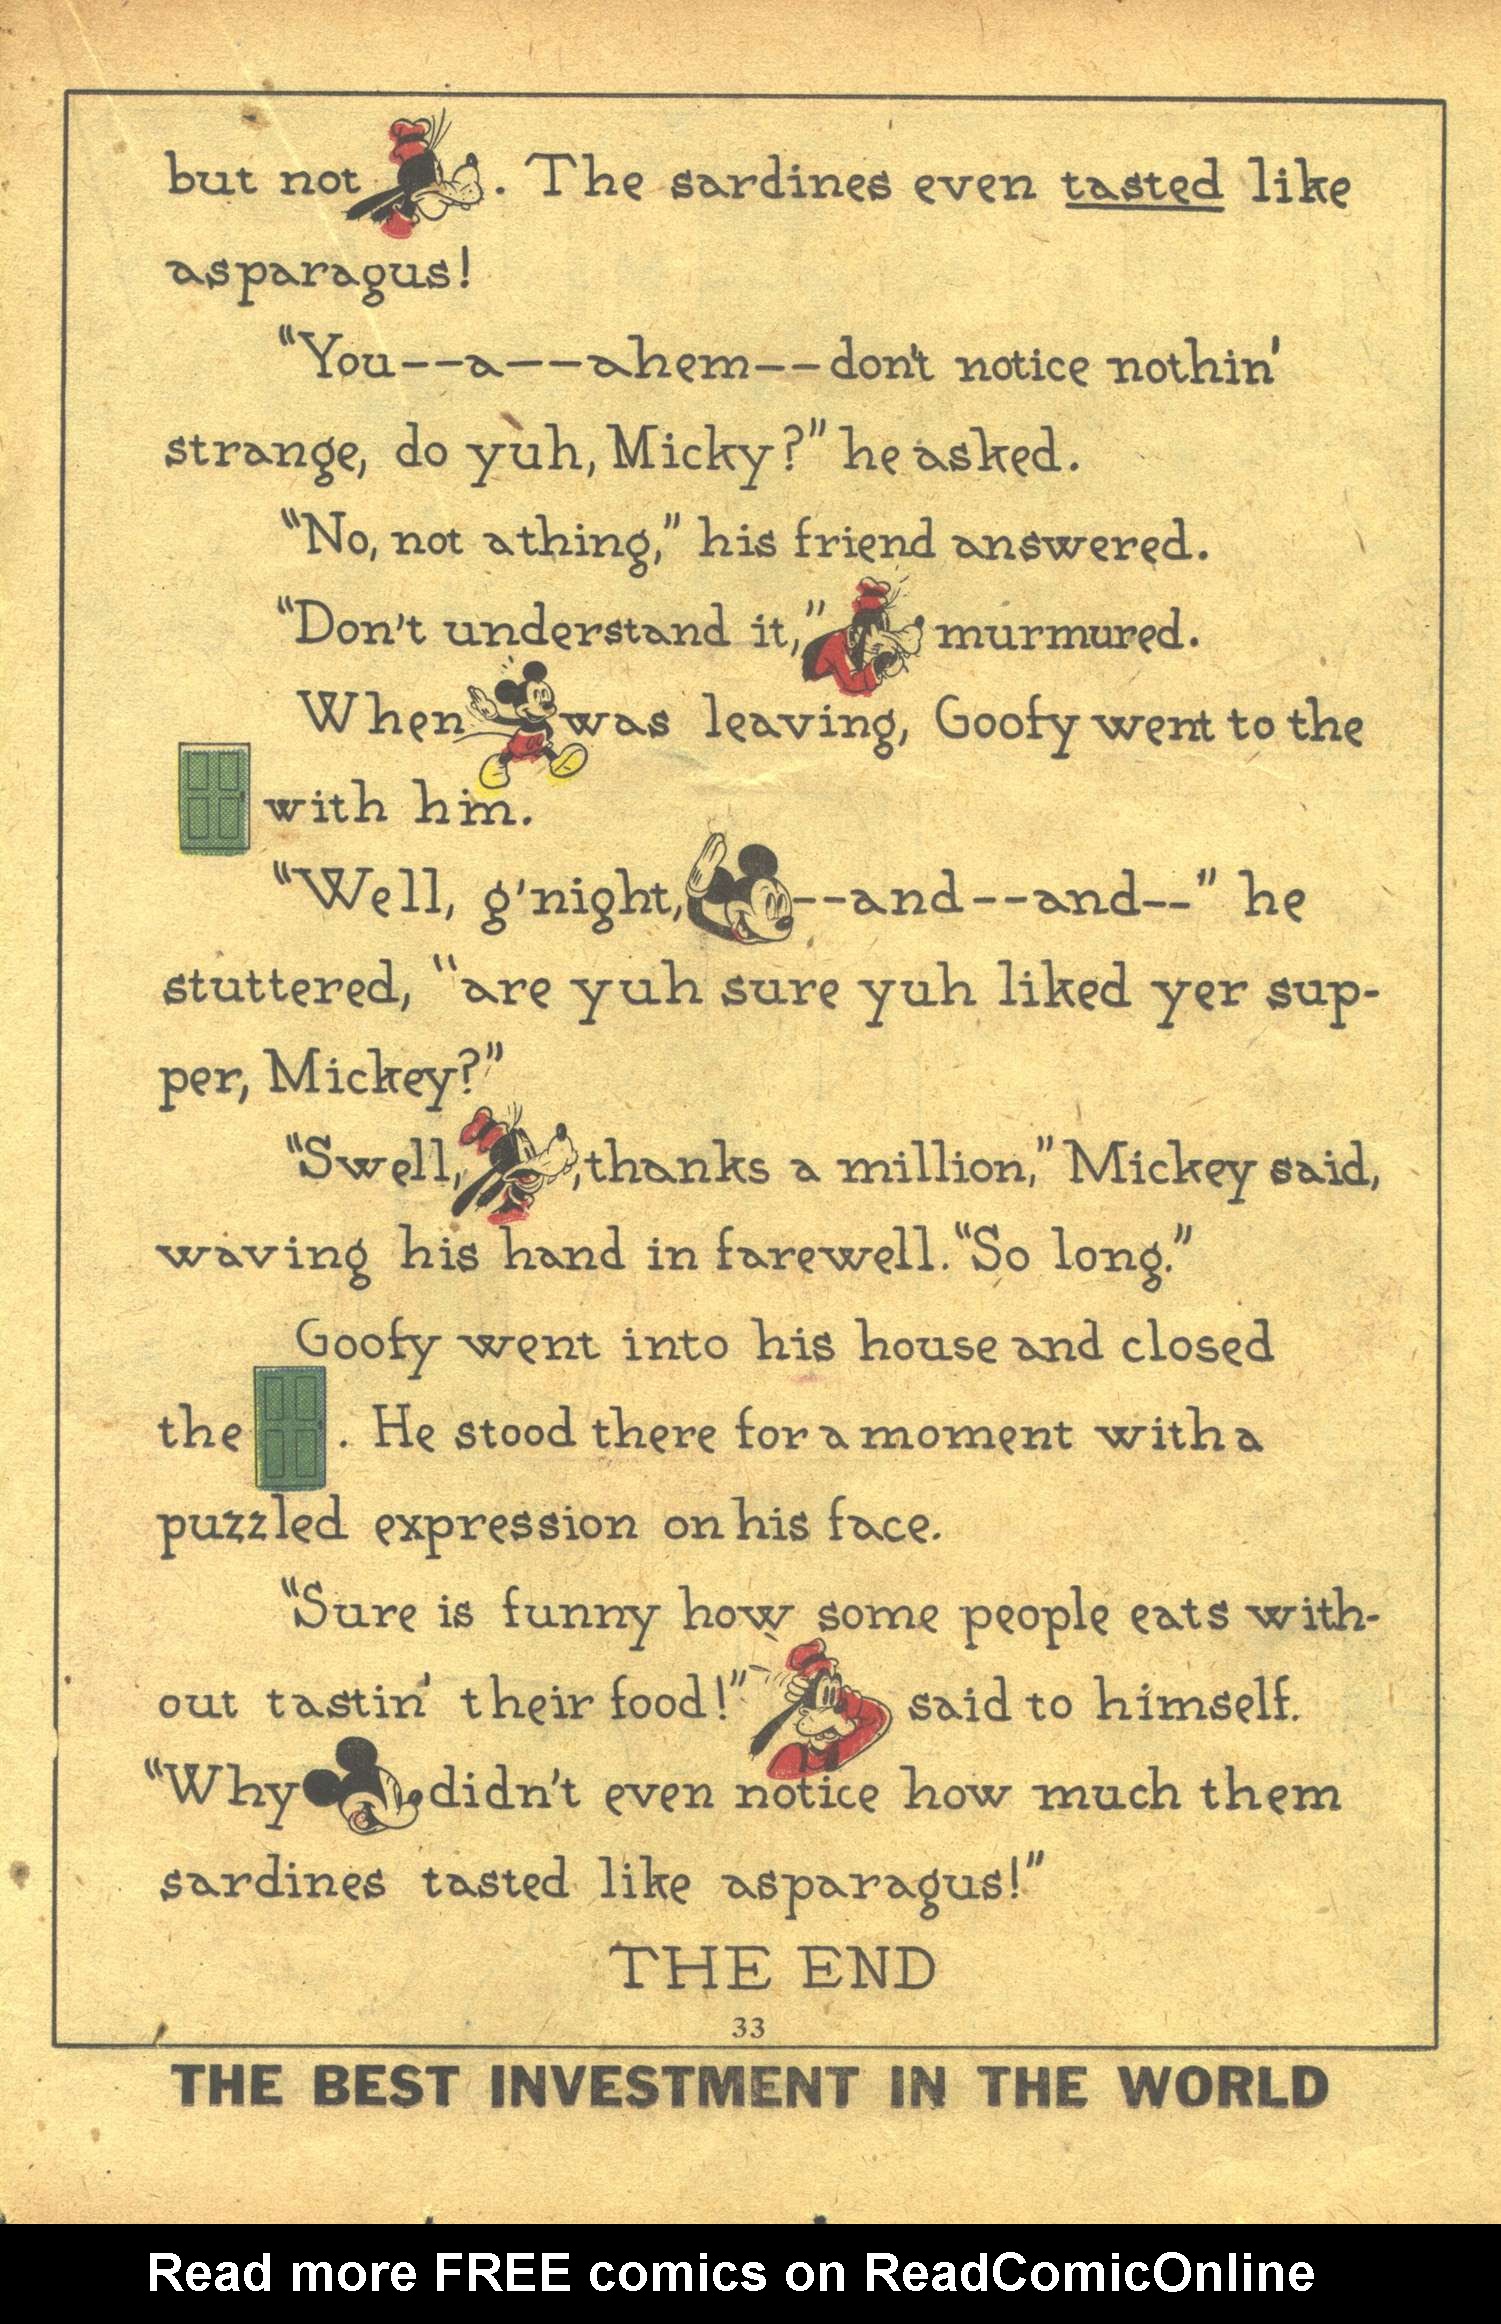 but not . The sardines even tasted like
asparagus!
"You--a--ahem--don't notice nothin'
strange, do yuh, Micky?" he asked.
"No, not a thing," his friend answered.
"Don't understand it," murmured.
When was leaving, Goofy went to the
with him.
"Well, g'night, --and--and--" he
stuttered, "are yuh sure yuh liked yer sup-
per, Mickey?"
"Swell, , thanks a million," Mickey said,
waving his hand in farewell. "So long."
Goofy went into his house and closed
the . He stood there for a moment with a
puzzled expression on his face.
"Sure is funny how some people eats with-
out tastin' their food!" said to himself.
"Why didn't even notice how much them
sardines tasted like asparagus!"
THE END
33
THE BEST INVESTMENT IN THE WORLD
Read more FREE comics on ReadComicOnline